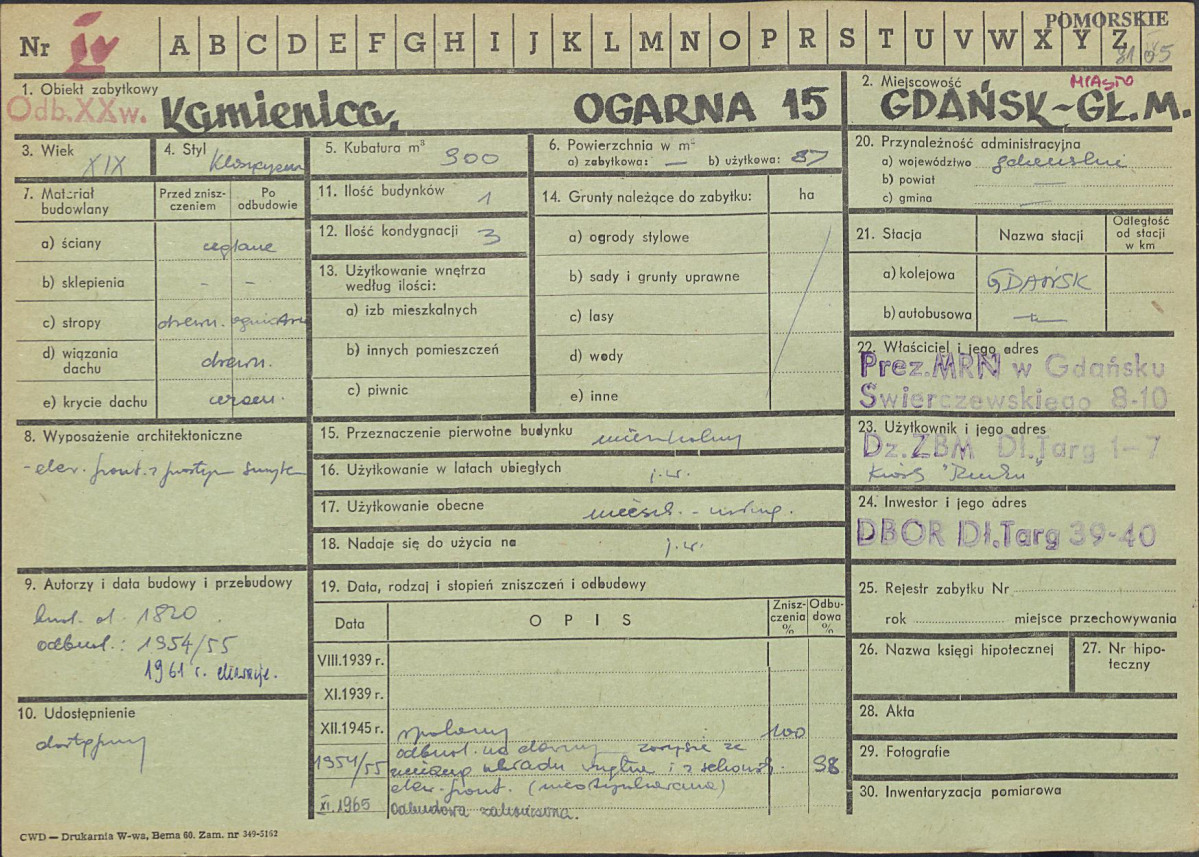 POMORSKIE
Nr IV A B C D E F G H I J K L M N O P R S T U V W X Y Z
1. Obiekt zabytkowy
Odb. XX w.
Kamienica, OGARNA 15
2. Miejscowość MIASTO
GDAŃSK-GŁ.M.
3. Wiek XIX
4. Styl Klasycyzm
5. Kubatura m³ 900
6. Powierzchnia w m²
a) zabytkowa: — b) użytkowa: 87
7. Materiał budowlany
Przed zniszczeniem
Po odbudowie
a) ściany ceglane
b) sklepienia - -
c) stropy drewn.
d) wiązania dachu drewn.
e) krycie dachu ceram.
8. Wyposażenie architektoniczne
- elew. front. z
9. Autorzy i data budowy i przebudowy
bud. ok. 1820
odbud.: 1954/55
1961 r. elewacje.
10. Udostępnienie
dostępny
11. Ilość budynków 1
12. Ilość kondygnacji 3
13. Użytkowanie wnętrza według ilości:
a) izb mieszkalnych
b) innych pomieszczeń
c) piwnic
14. Grunty należące do zabytku: ha
a) ogrody stylowe
b) sady i grunty uprawne
c) lasy
d) wody
e) inne
15. Przeznaczenie pierwotne budynku mieszkalny
16. Użytkowanie w latach ubiegłych j.w.
17. Użytkowanie obecne mieszk. - usług.
18. Nadaje się do użycia na j.w.
19. Data, rodzaj i stopień zniszczeń i odbudowy
Data
OPIS
Zniszczenia %
Odbudowa %
VIII.1939 r.
XI.1939 r.
XII.1945 r. spalony 100
1954/55 odbud. na dawnym zarysie ze
zmianą układu wnętrz i z 98
elew. front.
XI.1965 Odbudowa zakończona.
20. Przynależność administracyjna
a) województwo gdańskie
b) powiat —
c) gmina —
21. Stacja
Nazwa stacji
Odległość od stacji w km
a) kolejowa GDAŃSK
b) autobusowa
22. Właściciel i jego adres
Prez. MRN w Gdańsku
Świerczewskiego 8-10
23. Użytkownik i jego adres
Dz. ZBM Dł. Targ 1-7
24. Inwestor i jego adres
DBOR Dł. Targ 39-40
25. Rejestr zabytku Nr
rok miejsce przechowywania
26. Nazwa księgi hipotecznej
27. Nr hipoteczny
28. Akta
29. Fotografie
30. Inwentaryzacja pomiarowa
CWD — Drukarnia W-wa, Bema 60. Zam. nr 349-5162